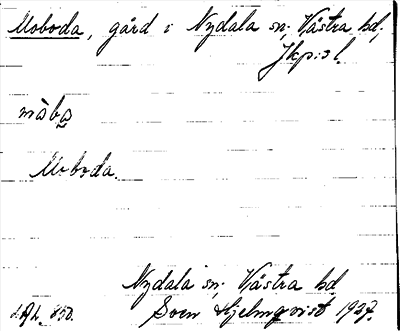 Moboda, gård i Nydala sn; Västra hd,
Jkp:s l.
Moboda.
Nydala sn; Västra hd
Sven Hjelmqvist 1927.